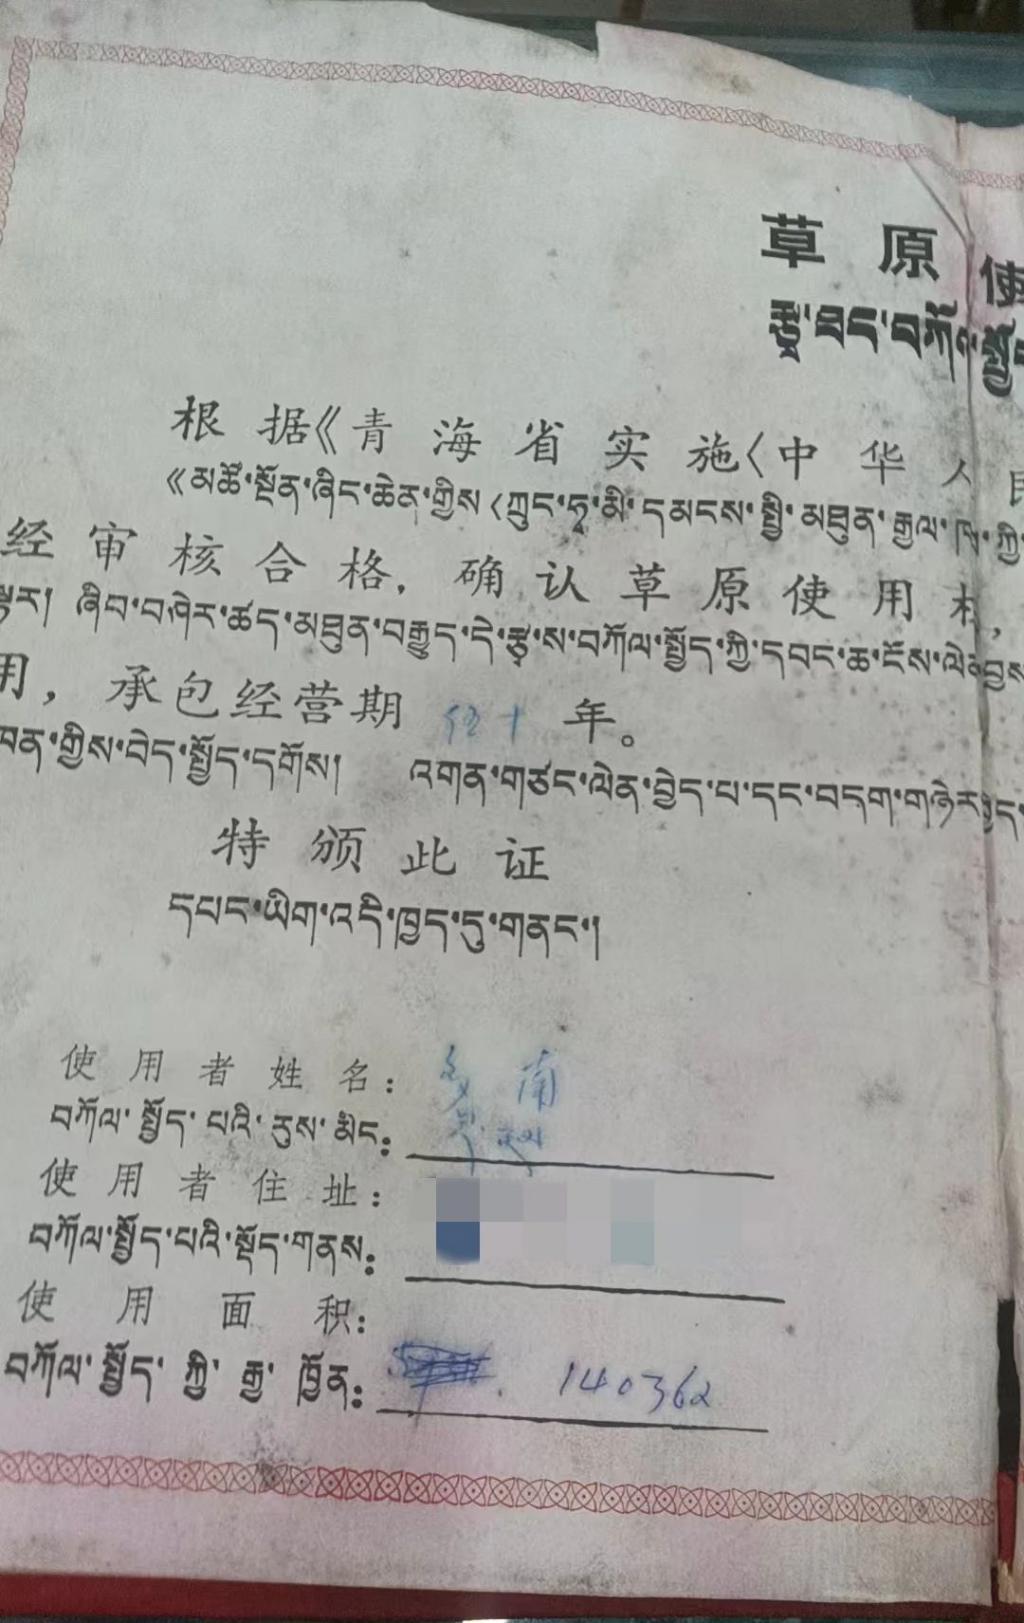 草原使
རྩྭ་ཐང་བཀོལ་སྤྱོད
根据《青海省实施〈中华人民
《མཚོ་སྔོན་ཞིང་ཆེན་གྱིས〈ཀྲུང་ཧྭ་མི་དམངས་སྤྱི་མཐུན་རྒྱལ་ཁབ་ཀྱི
经审核合格，确认草原使用权，
ལྟར། ཞིབ་བཤེར་ཚད་མཐུན་བརྒྱུད་དེ་རྩྭ་ས་བཀོལ་སྤྱོད་ཀྱི་དབང་ཆ་ངོས་ལེན་བྱས
用，承包经营期 年。
ཁན་གྱིས་བེད་སྤྱོད་དགོས། འགན་གཙང་ལེན་བྱེད་པ་དང་བདག་གཉེར་བྱེད་
特颁此证
དཔང་ཡིག་འདི་ཁྱད་དུ་གནང་།
使用者姓名： 多南
བཀོལ་སྤྱོད་པའི་རུས་མིང：
使用者住址：
བཀོལ་སྤྱོད་པའི་སྡོད་གནས：
使用面积：
བཀོལ་སྤྱོད་ཀྱི་རྒྱ་ཁྱོན： 140362